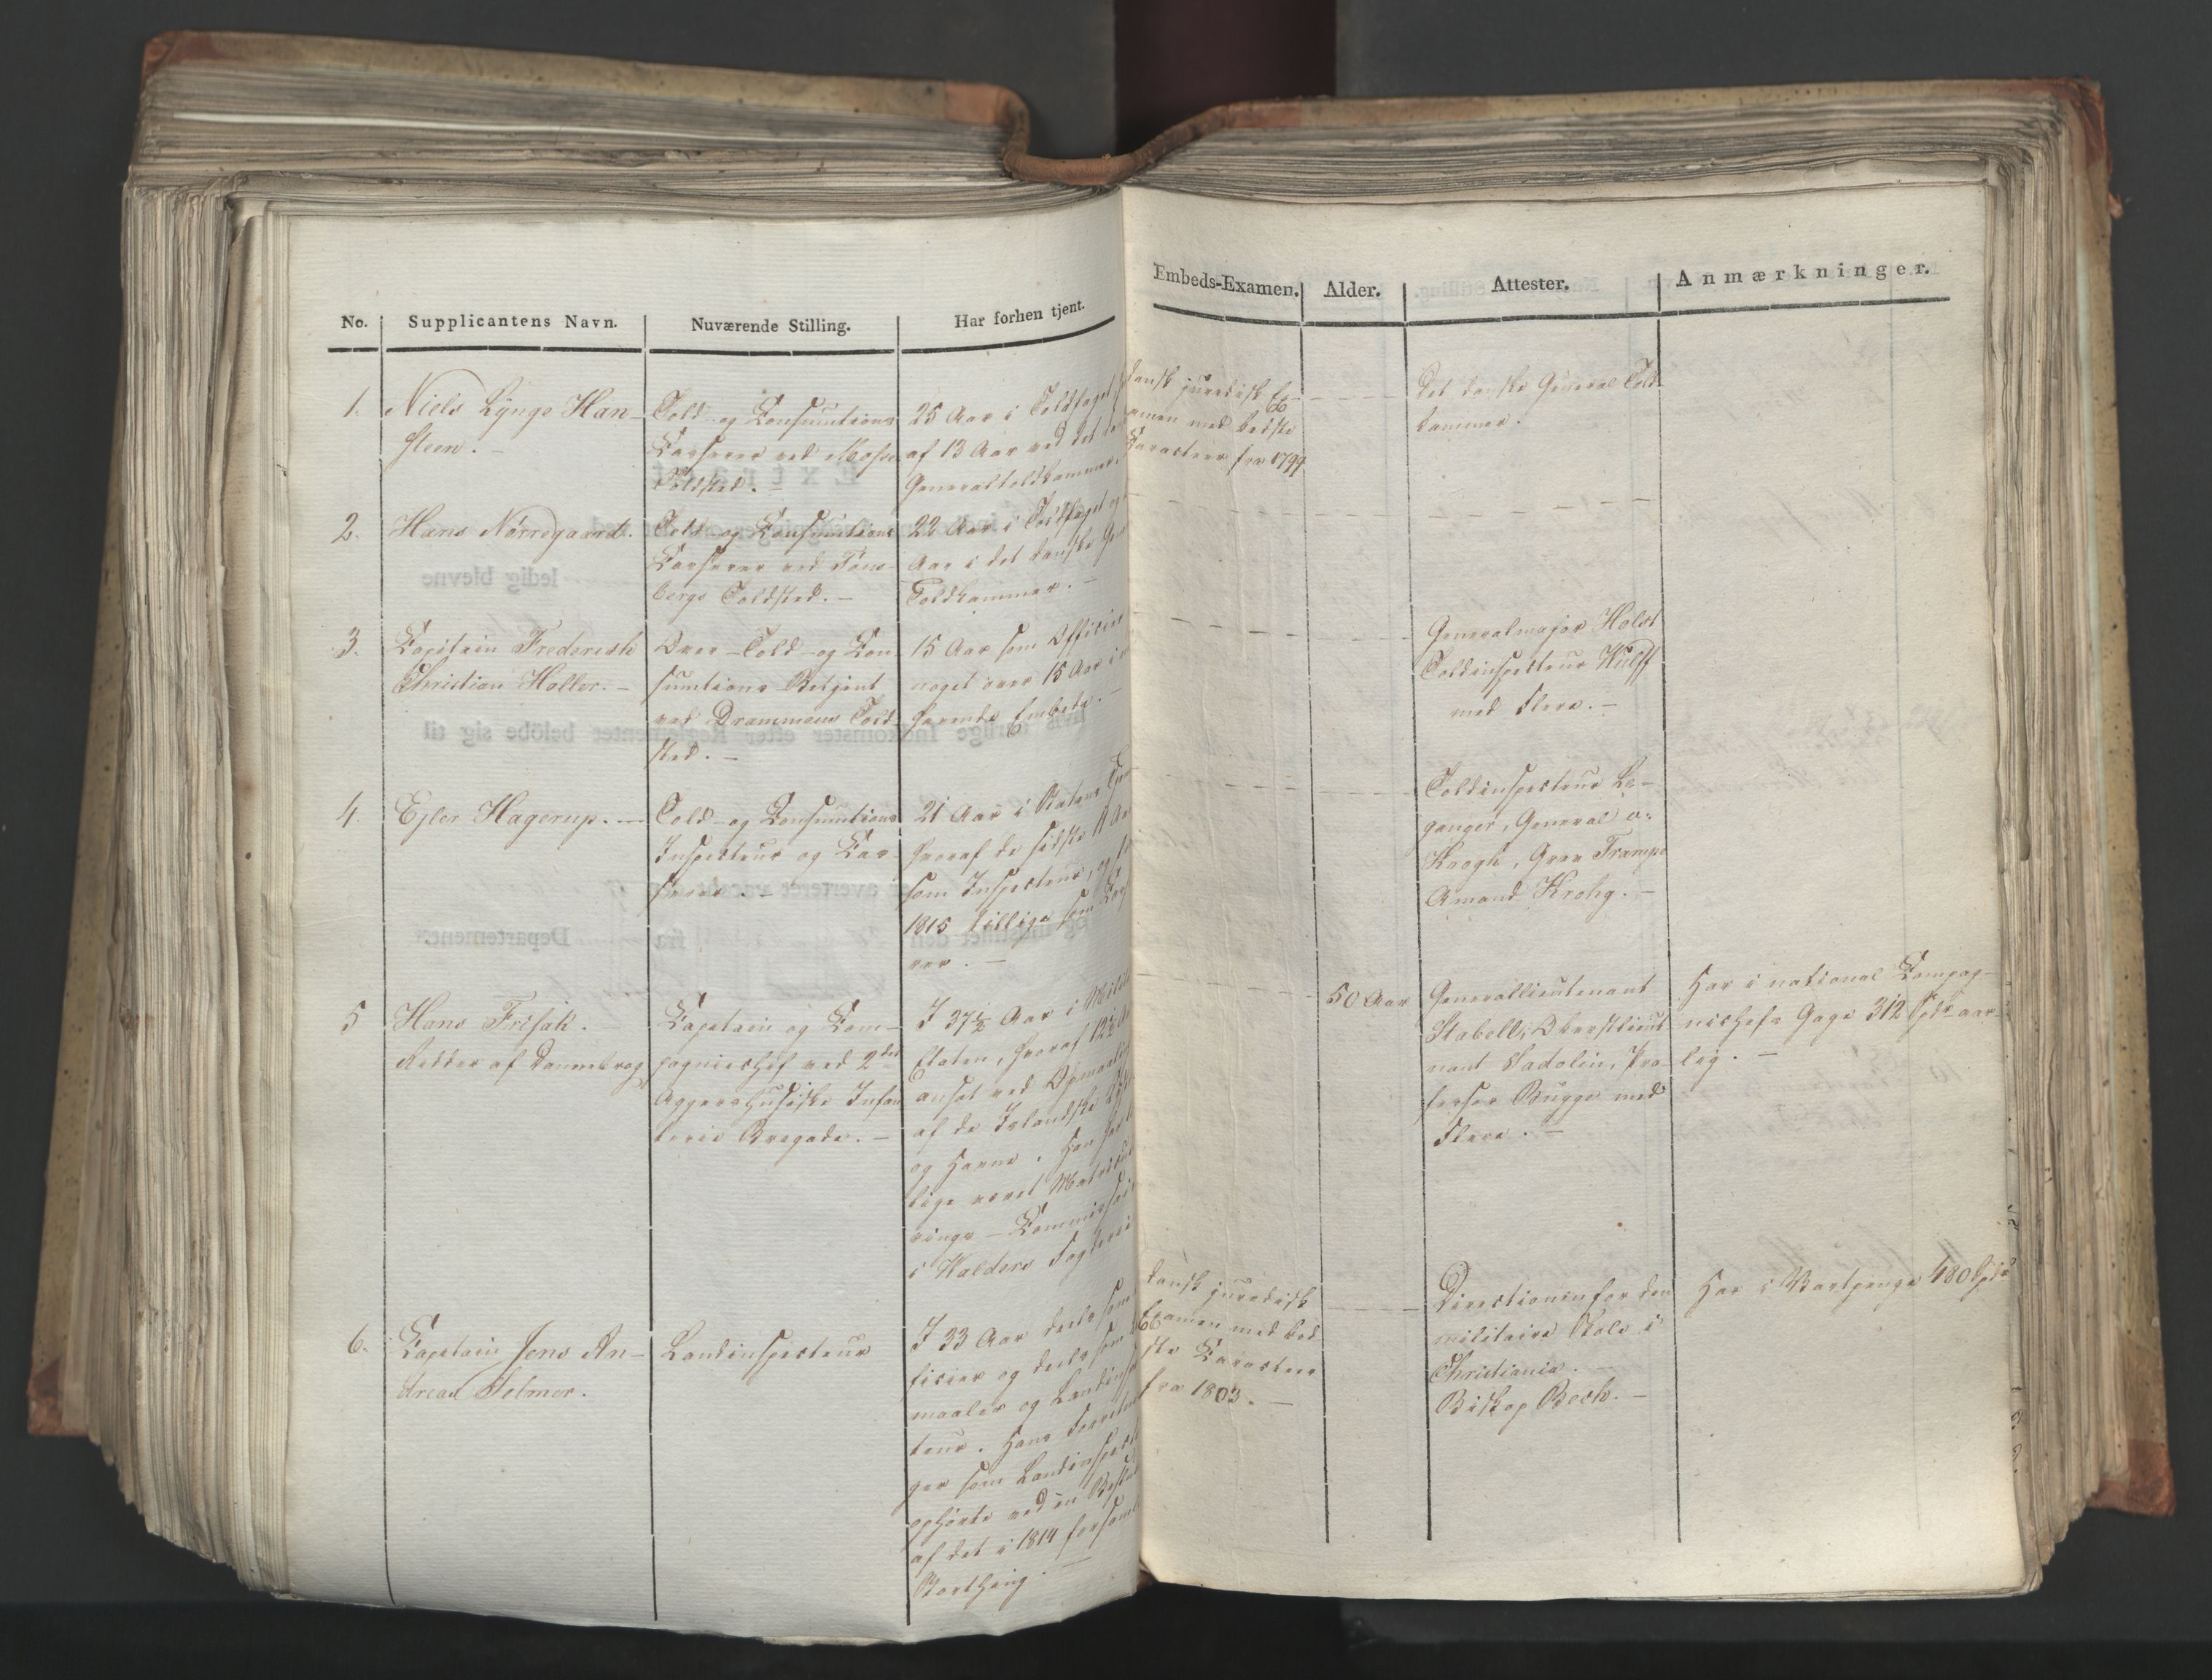 No.
Supplicantens Navn.
Nuværende Stilling.
Har forhen tjent.
Embeds-Examen.
Alder.
Attester.
Anmærkninger.
1.
Niels Lÿnge Han-
steen. -
Told- og Consumtions
Casserer ved Mosse
Toldsted. -
25 Aar i Toldfaget,
af 13 Aar ved det
Generaltoldkammer.
dansk juridisk Ex-
amen med bedste
Caracteer fra 1799
Det danske General Told
kammer.
2.
Hans Nörregaard.
Told- og Consumtions
Casserer ved Töns-
bergs Toldsted. -
22 Aar i Toldfaget og
Aar i det danske
Toldkammer. -
3.
Capitain Frederich
Christian Holler. -
Over-Told-og Con
sumtions-Betjent
ved Drammens Told-
sted. -
15 Aar som Officier
noget over 15 Aar i
havende Embede. -
Generalmajor Holst
Toldinspecteur Wülff
med Flere. -
4.
Ejler Hagerup. -
Told- og Consumtions
Inspecteur og Cas-
serer. -
21 Aar i Statens
hvoraf de sidste 11 Aar
som Inspecteur, og
1815 tillige som Cas
rer. -
Toldinspecteur Le-
ganger, General v:
Krogh, Grev Trampe
Amand Krohg. -
5
Hans Frisak.
Ridder af Dannebrog
Capitain og Com-
pagniechef ved 2den
Aggershusiske Infan
terie Bregade. -
I 37½ Aar i
Etaten, hvoraf 12½
ansat ved Opmaaling
af de Islandske
og Havne. Han har
lige været
rings-Commissair
i Walders Fogderi
50 Aar
Generallieutenant
Stabell, Oberstlieut
nant Sadolin, Pro
fessor Bugge med
Flere. -
Har i national Compag-
niechefs Gage 312 Spdr aar-
lig. -
6.
Capitain Jens An-
dreas Selmer.
Landinspecteur
I 33 Aar deels som
ficier og deels som
maaler og Landinspec
teur. Hans Forretnin
ger som Landinspecte
ophörte ved en
af det i 1814 forsaml
Storthing. -
dansk juridisk
Examen med bed
ste Caracteer
fra 1803. -
Directionen for den
militaire Skole i
Christiania. -
Biskop Bech. -
Har i Vartpenge 480 Spdr